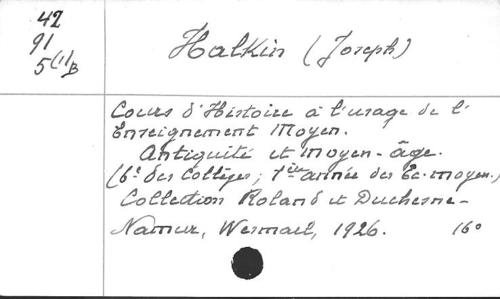 42
91
5(1)B
Halkin (Joseph)
Cours d'Histoire à l'usage de l'
Enseignement Moyen.
Antiquité et Moyen-âge.
(6e des Collèges; 1ière année des Ec. moyen.)
Collection Roland et Duchesne-
Namur, Wesmael, 1926. 16°